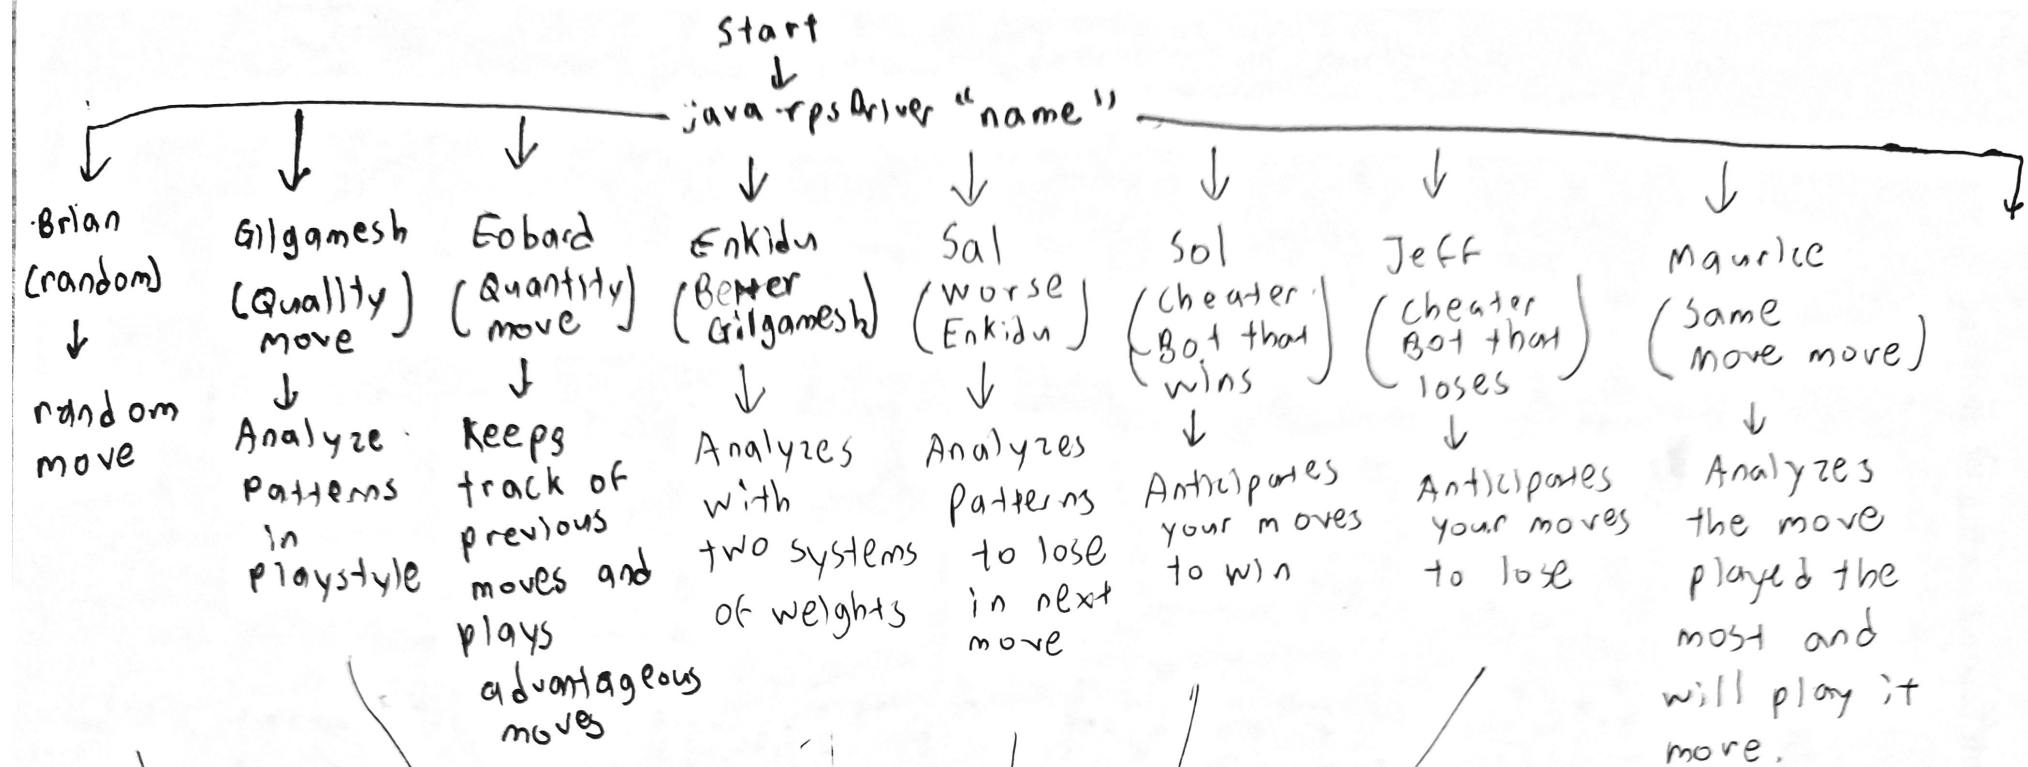 Start
java rpsDriver "name"
Brian
(random)
random
move
Gilgamesh
(Quality
move)
Analyze
Patterns
in
playstyle
Eobard
(Quantity
move)
Keeps
track of
previous
moves and
plays
advantageous
moves
Enkidu
(Better
Gilgamesh)
Analyzes
with
two systems
of weights
Sal
(worse
Enkidu)
Analyzes
patterns
to lose
in next
move
Sol
(Cheater
Bot that
wins)
Anticipates
your moves
to win
Jeff
(Cheater
Bot that
loses)
Anticipates
your moves
to lose
Maurice
(Same
move move)
Analyzes
the move
played the
most and
will play it
more.